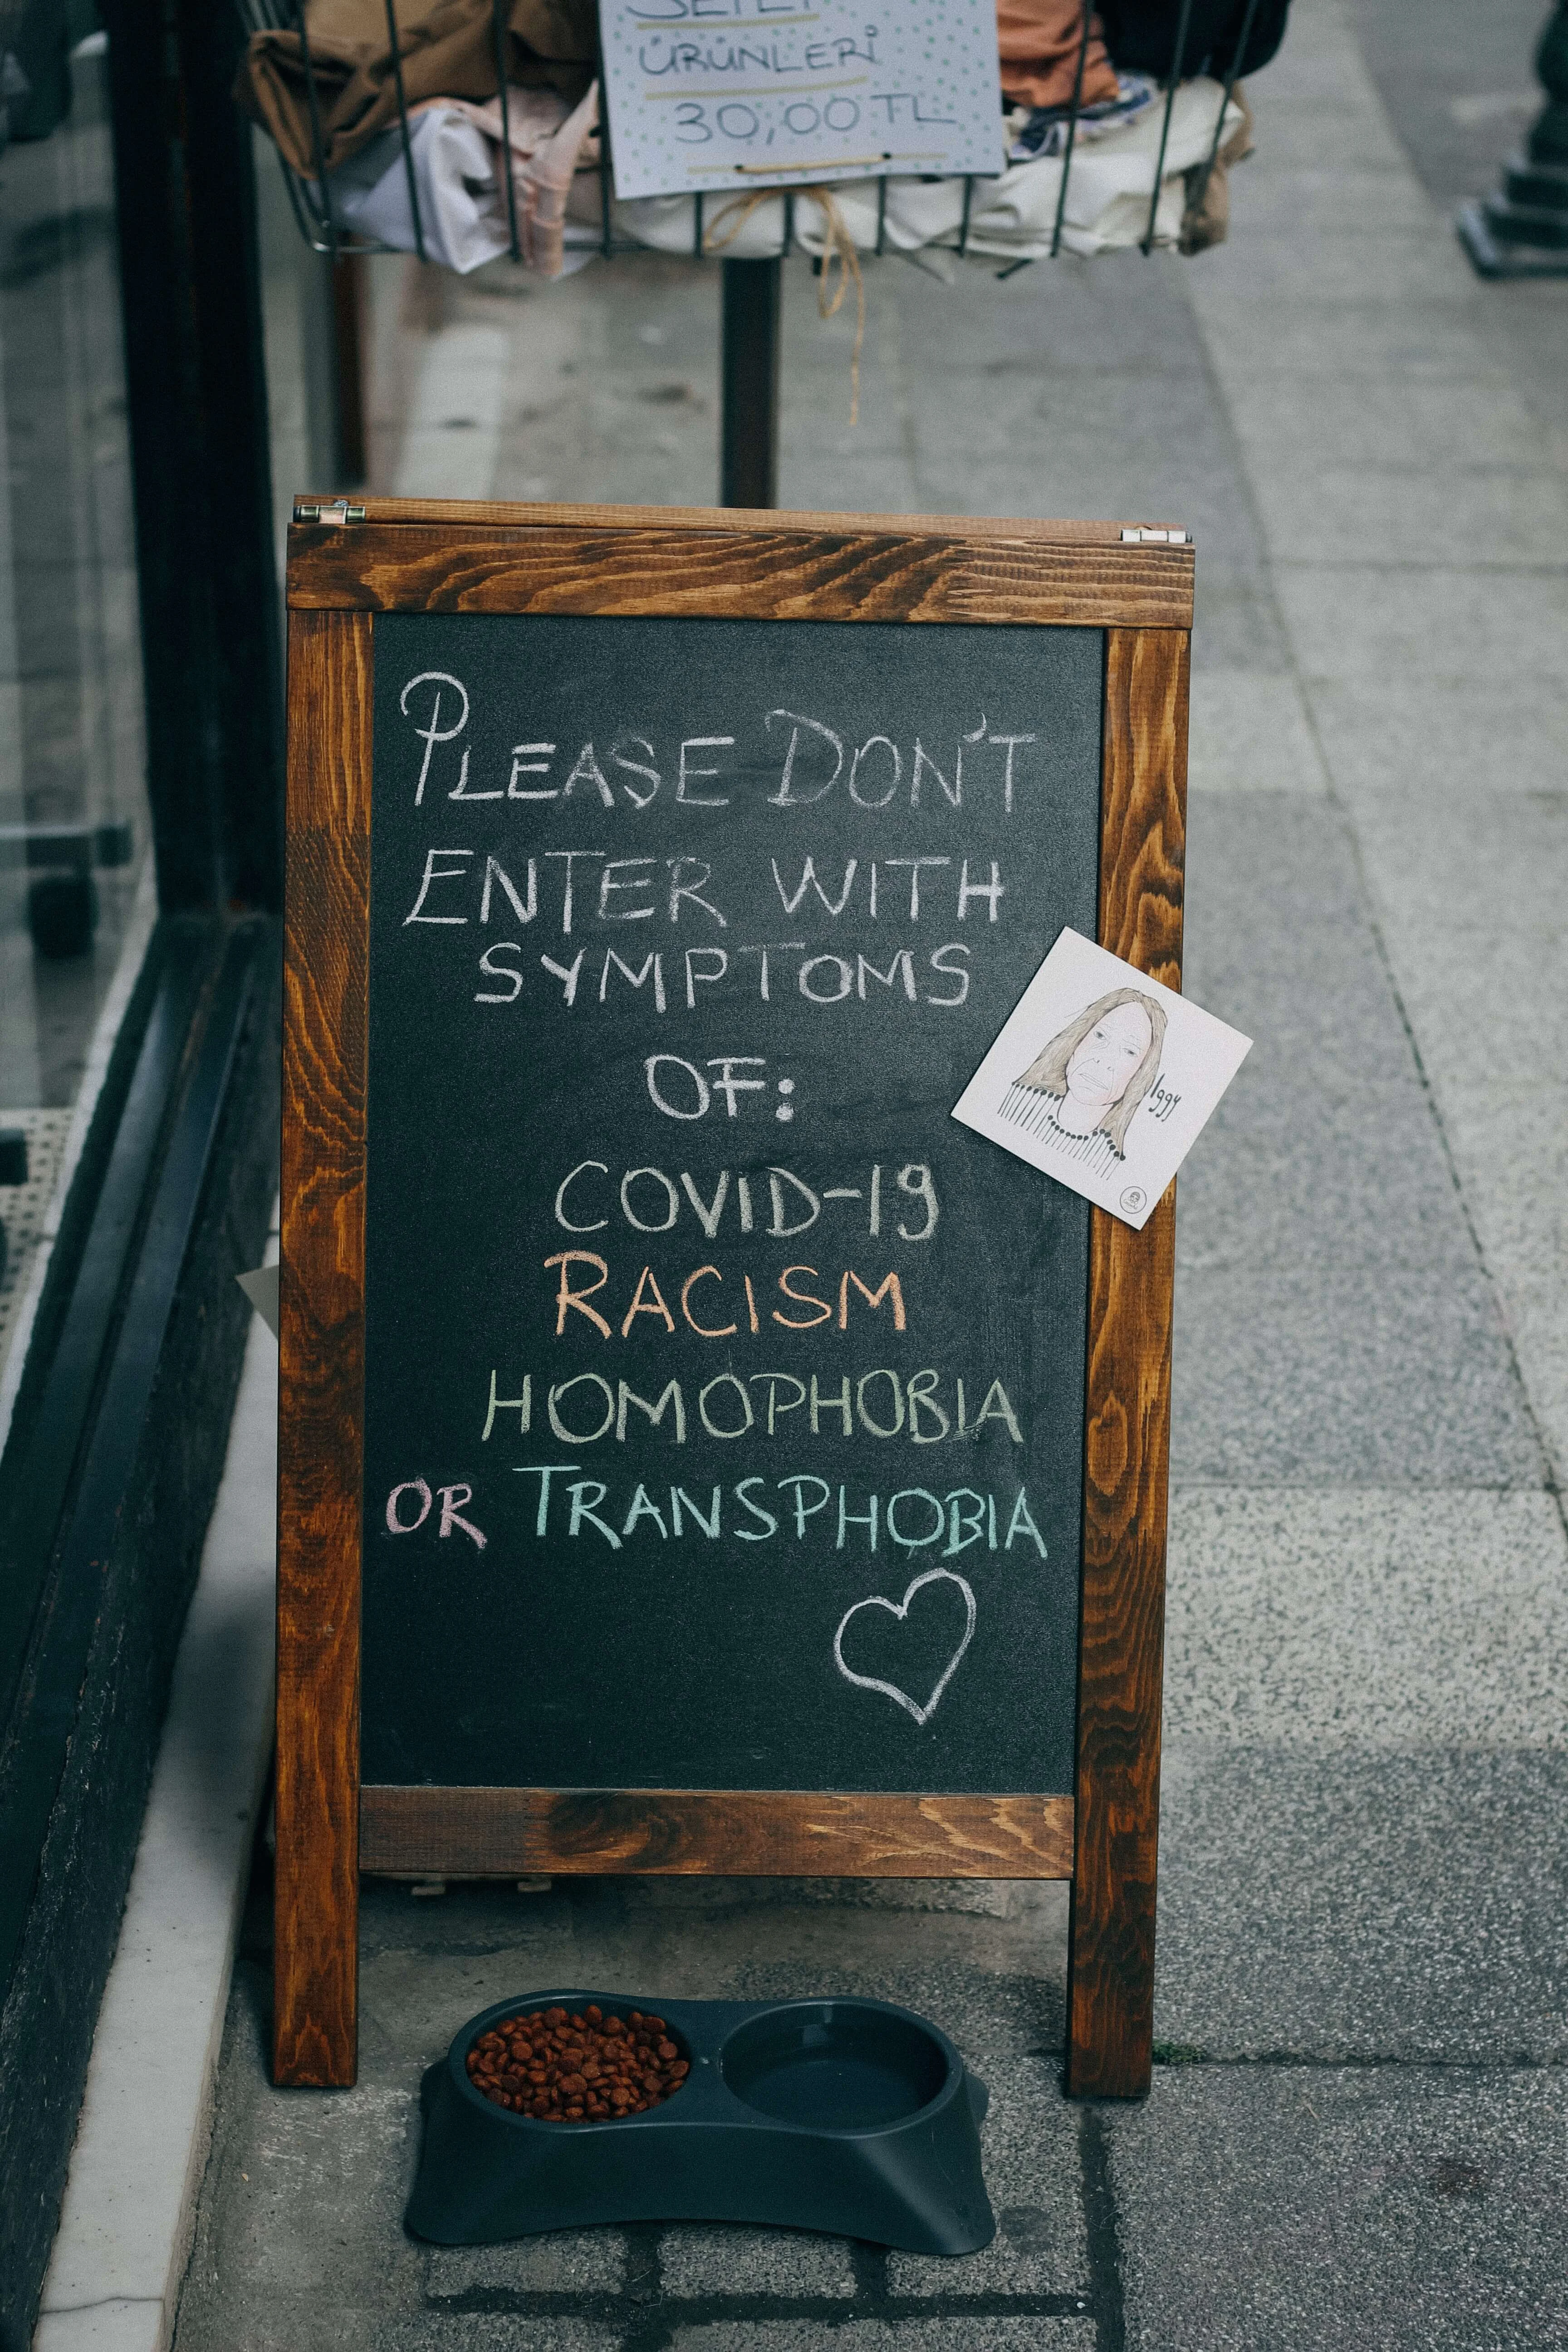 ÜRÜNLERİ
30,00 TL
PLEASE DON'T
ENTER WITH
SYMPTOMS
OF:
COVID-19
RACISM
HOMOPHOBIA
OR TRANSPHOBIA
Iggy